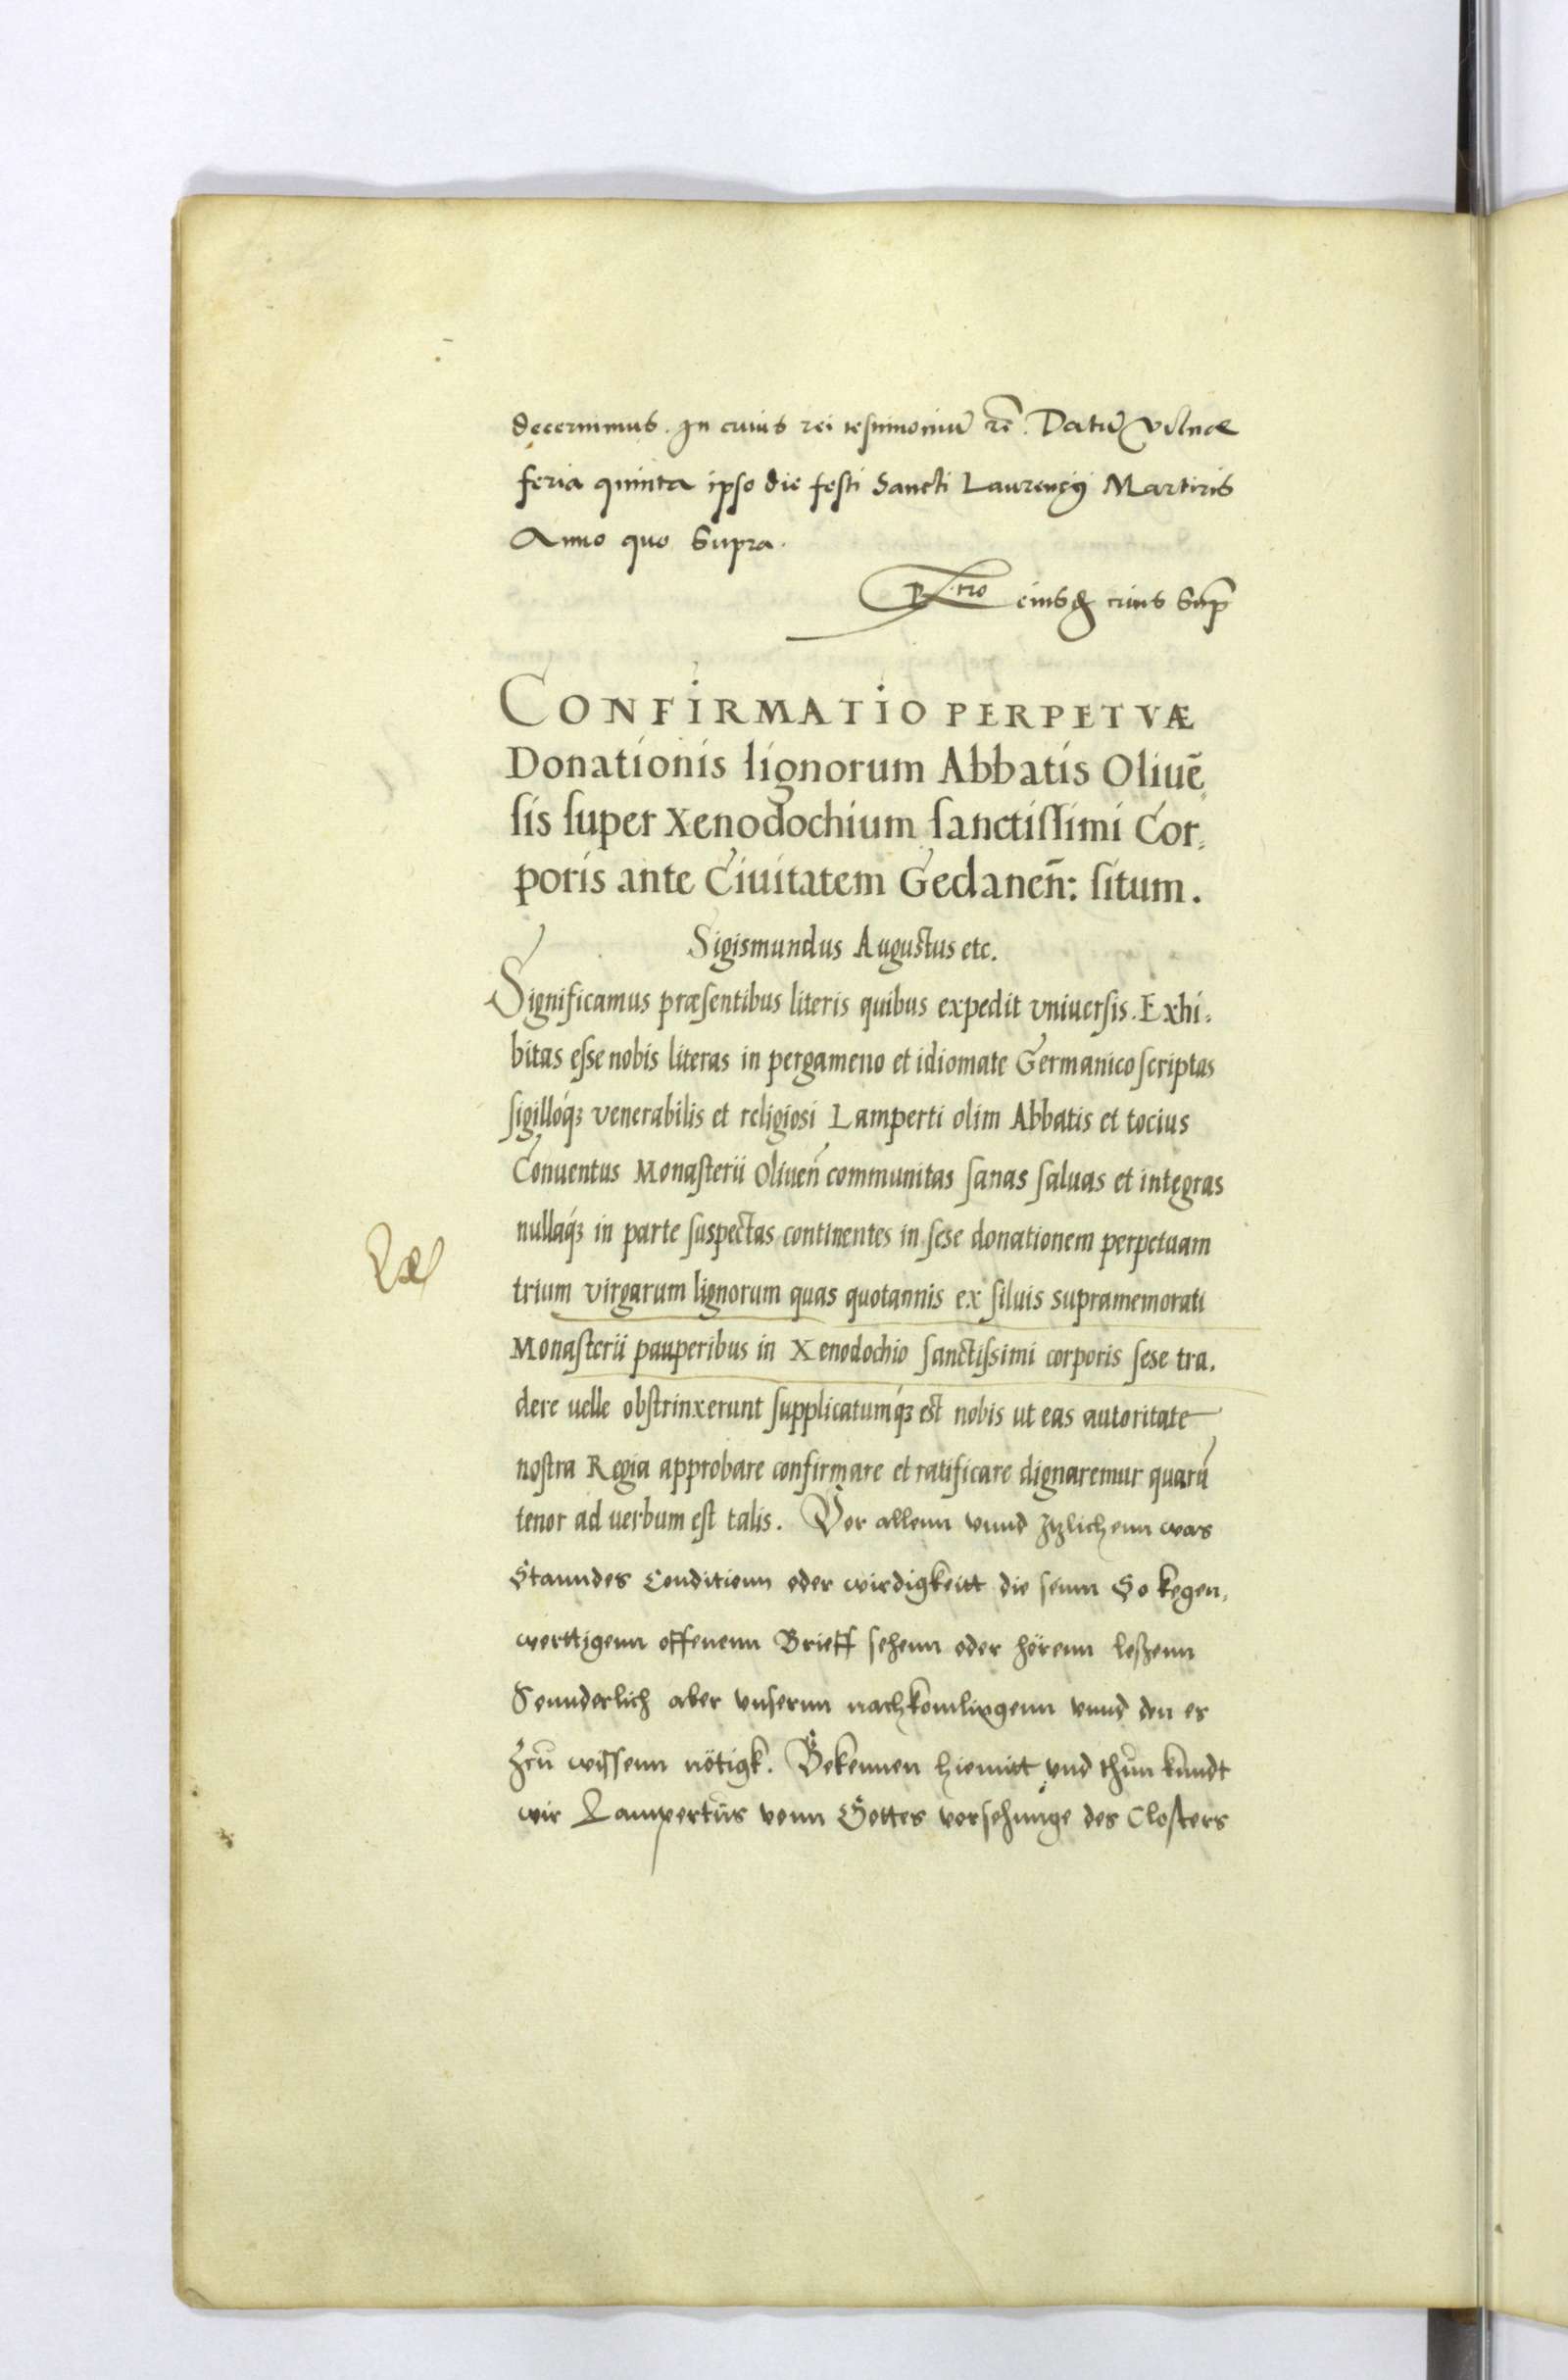 decernimus. In cuius rei testimoniū ꝛc̄. Datū Vilnæ
feria quinta ipso die festi Sancti Laurencij Martiris
Anno quo Supra.
eiusdē cuius Sup̄
CONFIRMATIO PERPETVÆ
Donationis lignorum Abbatis Oliuē
sis super Xenodochium sanctissimi Cor,
poris ante Ciuitatem Gedaneñ: situm.
Sigismundus Augustus etc.
Significamus præsentibus literis quibus expedit vniuersis. Exhi,
bitas esse nobis literas in pergameno et idiomate Germanico scriptas
sigilloq́ꝫ venerabilis et religiosi Lamperti olim Abbatis et tocius
Conuentus Monasterii Oliueñ communitas sanas saluas et integras
nullaq́ꝫ in parte suspectas continentes in sese donationem perpetuam
trium virgarum lignorum quas quotannis ex siluis supramemorati
Monasterii pauperibus in Xenodochio sanctissimi corporis sese tra,
dere uelle obstrinxerunt supplicatumq́ꝫ est nobis ut eas autoritate
nostra Regia approbare confirmare et ratificare dignaremur quarū
tenor ad uerbum est talis. Vor allenn vnnd Itzlichenn was
Stanndes Conditionn oder wirdigkeitt die seinn So kegen,
werttigenn offenenn Brieff sehenn oder hörenn leszenn
Sonnderlich aber vnsernn nachkomlingenn vnnd den es
Zcu wissenn nötigk. Bekennen hiemitt vnd thun kundt
wir Lampertus vonn Gottes vorsehunge des Closters